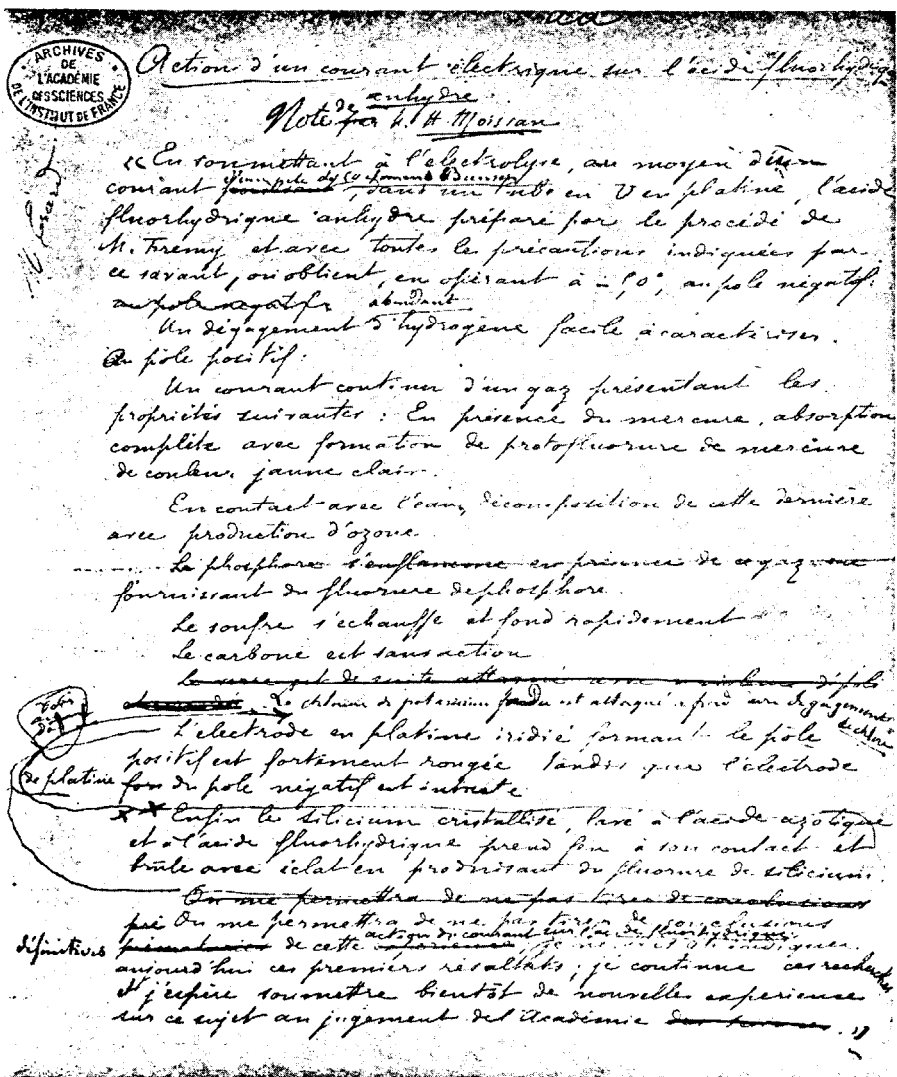 ARCHIVES
DE
L'ACADÉMIE
DES SCIENCES
DE L'INSTITUT DE FRANCE
Action d'un courant électrique sur l'acide fluorhydrique
anhydre.
Note de M. H. Moissan
« En soumettant à l'electrolyse, au moyen d'un
courant d'une pile de 50 elements Bunsen, dans un tube en V en platine, l'acide
fluorhydrique anhydre préparé par le procédé de
M. Fremy et avec toutes le précautions indiquées par
ce savant, on obtient, en opérant à - 50°, au pole négatif:
au pole negatif
Un dégagement abondant d'hydrogène facile à caractériser.
Au pôle positif:
Un courant continu d'un gaz présentant les
propriétés suivantes : En présence du mercure, absorption
complète avec formation de protofluorure de mercure
de couleur jaune clair.
En contact avec l'eau, décomposition de cette dernière
avec production d'ozone.
Le phosphore s'enflamme en présence de ce gaz en
fournissant du fluorure de phosphore.
Le soufre s'echauffe et fond rapidement
Le carbone est sans action
Le verre est de suite attaqué avec
Le chlorure de potassium fondu est attaqué a froid avec dégagement
de chlore
L'électrode en platine iridié formant le pôle
positif est fortement rongée tandis que l'électrode
de platine
du pole négatif est intacte
Enfin le silicium cristallisé, lavé à l'acide azotique
et à l'acide fluorhydrique prend feu à son contact et
brûle avec éclat en produisant du fluorure de silicium.
On me permettra de ne pas tirer de conclusions
On me permettra de ne pas tirer de conclusions
définitives de cette action du courant sur l'acide fluorhydrique, je ne indiquer
aujourd'hui ces premiers résultats; je continue ces recherches
et j'espère soumettre bientôt de nouvelles experiences
sur ce sujet au jugement de l'Académie »